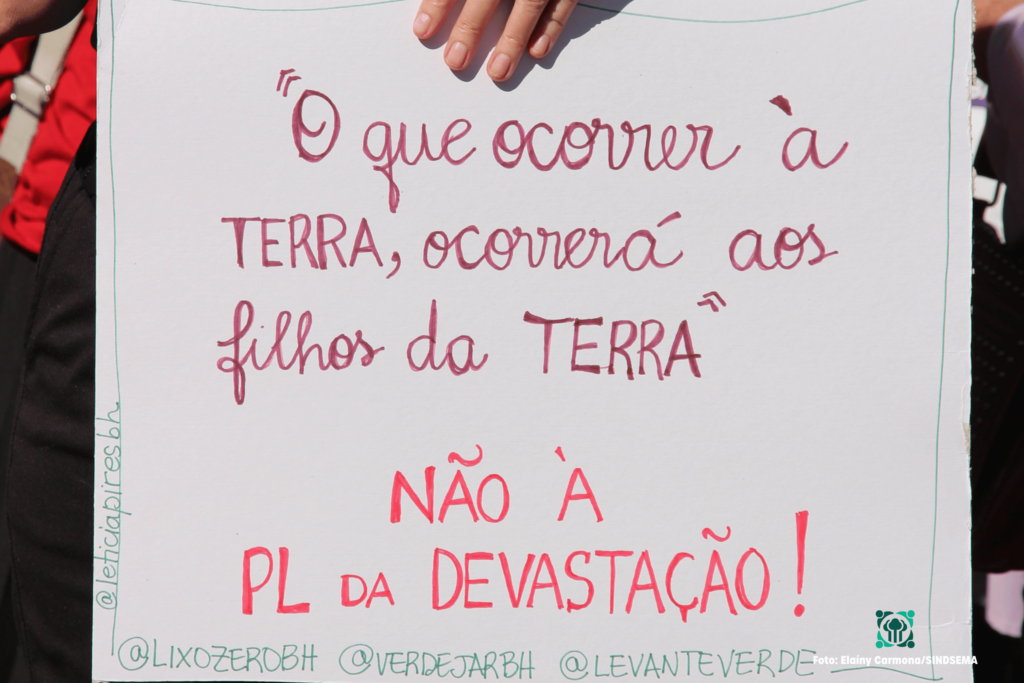 "O que ocorrer à
TERRA, ocorrerá aos
filhos da TERRA"
NÃO À
PL DA DEVASTAÇÃO!
@leticiapiresbh
@LIXOZEROBH @VERDEJARBH @LEVANTEVERDE
Foto: Elainy Carmona/SINDSEMA